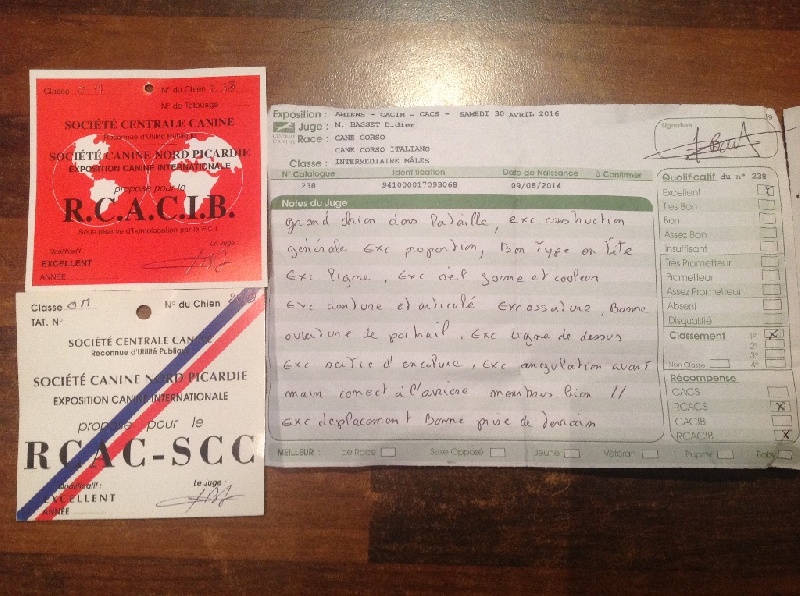 Classe
N° du Chien 238
N° de Tatouage
SOCIÉTÉ CENTRALE CANINE
Reconnue d'Utilité
SOCIÉTÉ CANINE NORD PICARDIE
EXPOSITION CANINE INTERNATIONALE
propose pour la
R.C.A.C.I.B.
Le Juge
EXCELLENT
ANNÉE
Classe
N° du Chien
TAT. N°
SOCIÉTÉ CENTRALE CANINE
Reconnue d'Utilité Publique
SOCIÉTÉ CANINE NORD PICARDIE
EXPOSITION CANINE INTERNATIONALE
propose pour le
RCAC-SCC
Le Juge :
EXCELLENT
ANNÉE
Exposition : AMIENS - CACIB - CACS - SAMEDI 30 AVRIL 2016
Juge : M. BASSET Didier
Race : CANE CORSO
CANE CORSO ITALIANO
Classe : INTERMEDIAIRE MÂLES
Signature
N° Catalogue Identification Date de Naissance à Confirmer
238 941000017093068 09/05/2014
Notes du Juge
grand chien dans la taille, exc construction
générale Exc proportion, Bon Type en tête
Exc ligne, Exc oeil forme et couleur
Exc denture et articulé Exc ossature, Bonne
ouverture de poitrail, Exc ligne de dessus
Exc sortie d'encolure, Exc angulation avant
mais correct à l'arrière membres bien //
Exc déplacement Bonne prise de terrain
Qualificatif du n° 238
Excellent X
Très Bon
Bon
Assez Bon
Insuffisant
Très Prometteur
Prometteur
Assez Prometteur
Absent
Disqualifié
Classement 1° X
2°
3°
Non Classé 4°
Récompense
CACS
RCACS X
CACIB
RCACIB X
MEILLEUR : de Race Sexe Opposé Jeune Vétéran Puppy Baby